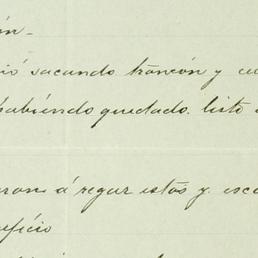 ió sacando troncón y cu
habiéndo quedado listo
aron á regar estos y esca
eficio